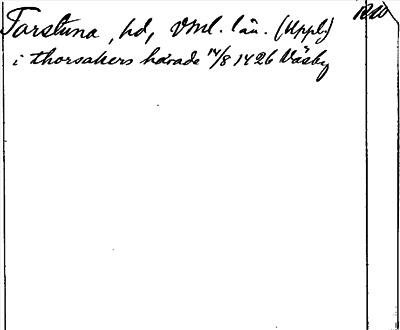 Torstuna, hd, Vml. län. (Uppl.)
i thorsakers härade 14/8 1426 Väsby